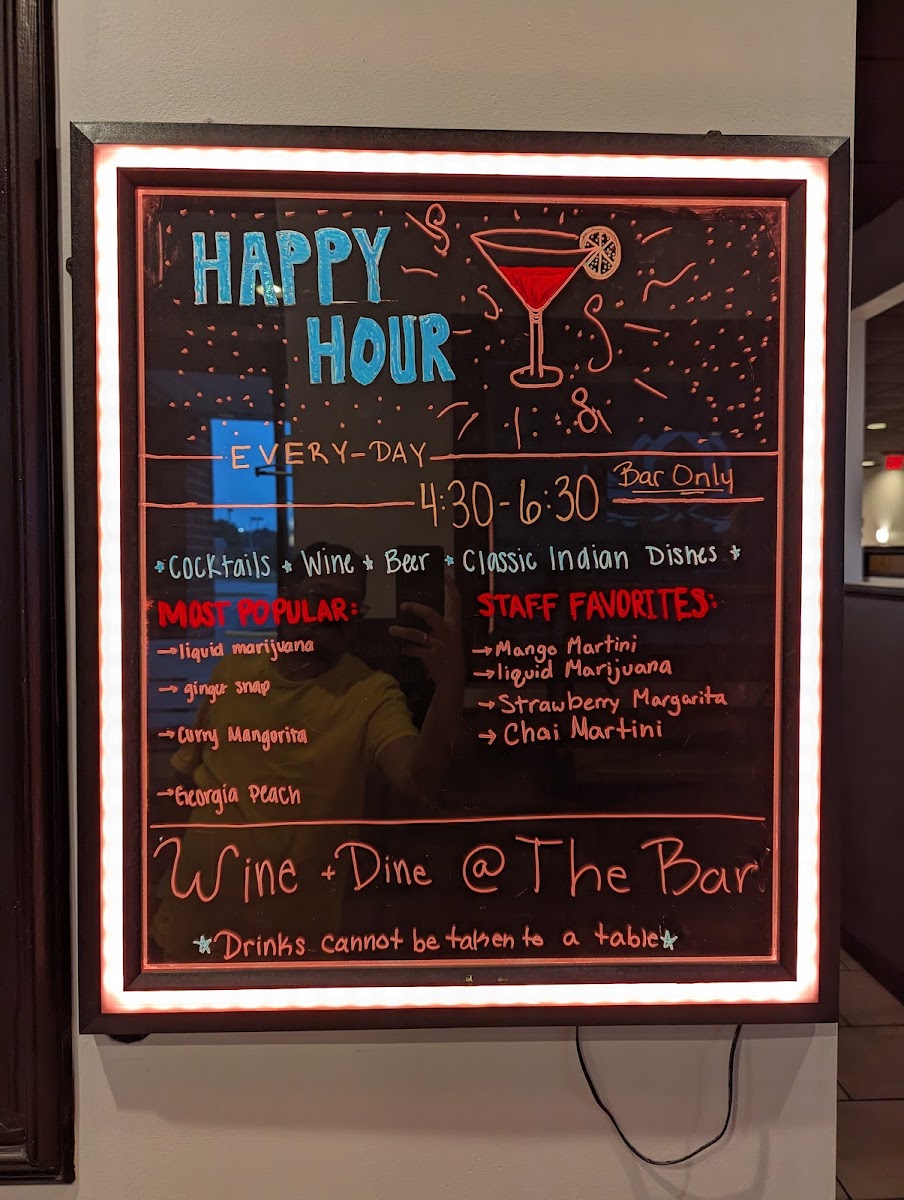 HAPPY
HOUR
EVERY-DAY
4:30-6:30 Bar Only
*Cocktails * Wine * Beer * Classic Indian Dishes *
MOST POPULAR:
→liquid marijuana
→ ginger snap
→Curry Mangorita
→Georgia Peach
STAFF FAVORITES:
→Mango Martini
→liquid Marijuana
→Strawberry Margarita
→ Chai Martini
Wine + Dine @ The Bar
*Drinks cannot be taken to a table*